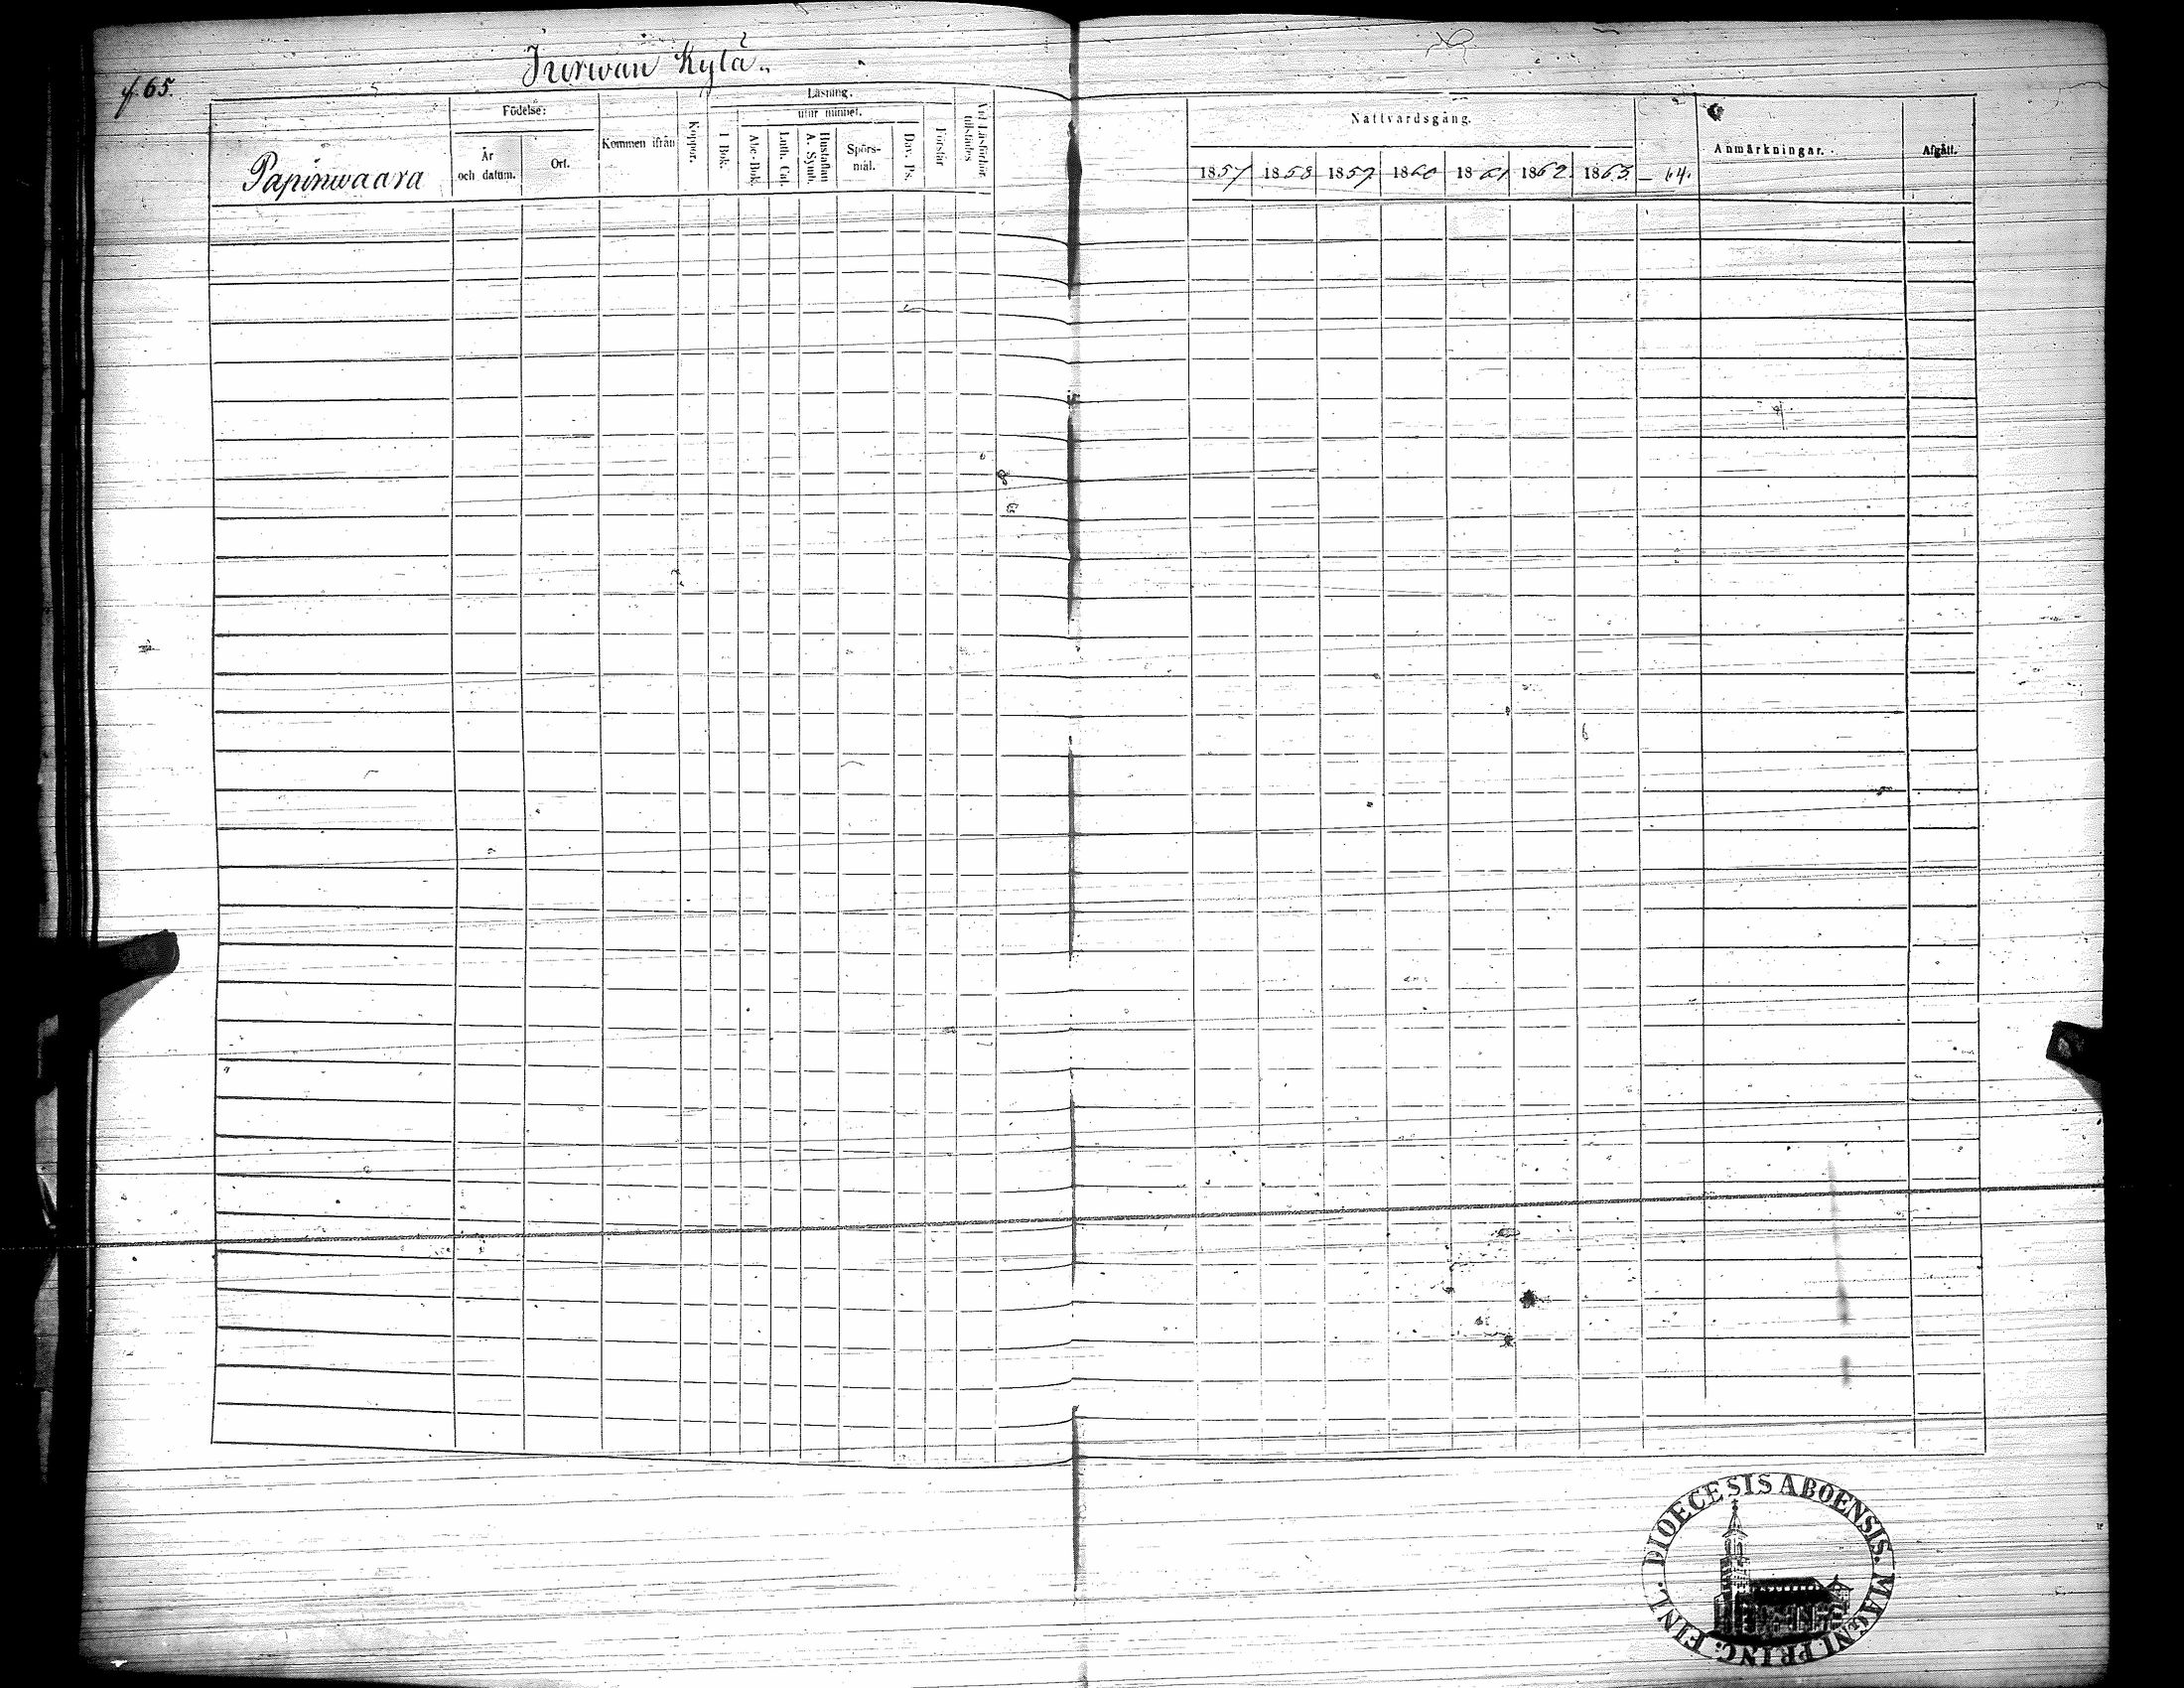 f. 65.
Jurwan Kylä.
Papinwaara
Födelse:
År
och datum.
Ort.
Kommen ifrån
Koppor.
Läsning.
I Bok.
utur minnet.
Abc-Bok.
Luth. Cat.
Hustaflan
A. Symb.
Spörs-
mål.
Dav. Ps.
Förstår
Vid Läsförhör
tillstädes
Nattvardsgång.
1857 1858 1859 1860 1861 1862 1863 — 64.
Anmärkningar.
Afgått.
DIOECESIS ABOENSIS. MAGNI PRINC: FINL.